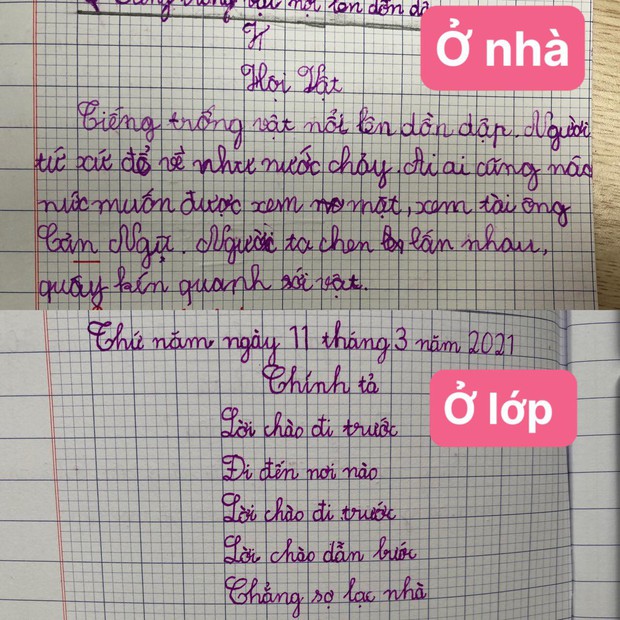 nổi lên dồn dậ
Ở nhà
H
Hội Vật
Tiếng trống vật nổi lên dồn dập. Người
tứ xứ đổ về như nước chảy. Ai ai cũng náo
nức muốn được xem mặt, xem tài ông
Cản Người ta chen lấn nhau,
quấy kín quanh sới vật.
Thứ năm ngày 11 tháng 3 năm 2021
Chính tả
Ở lớp
Lời chào đi trước
Đi đến nơi nào
Lời chào đi trước
Lời chào dẫn bước
Chẳng sợ lạc nhà